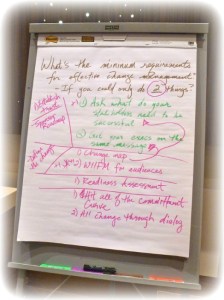 What's the minimum requirements
for effective change management
If you could only do 2 things?
1) Ask what do your
stakeholders need to be
successful
2) Get your execs on the
same message
1) Change map
2) WIIFM for audiences
1) Readiness Assessment
1) all of the commitment
curve
2) All change through dialog